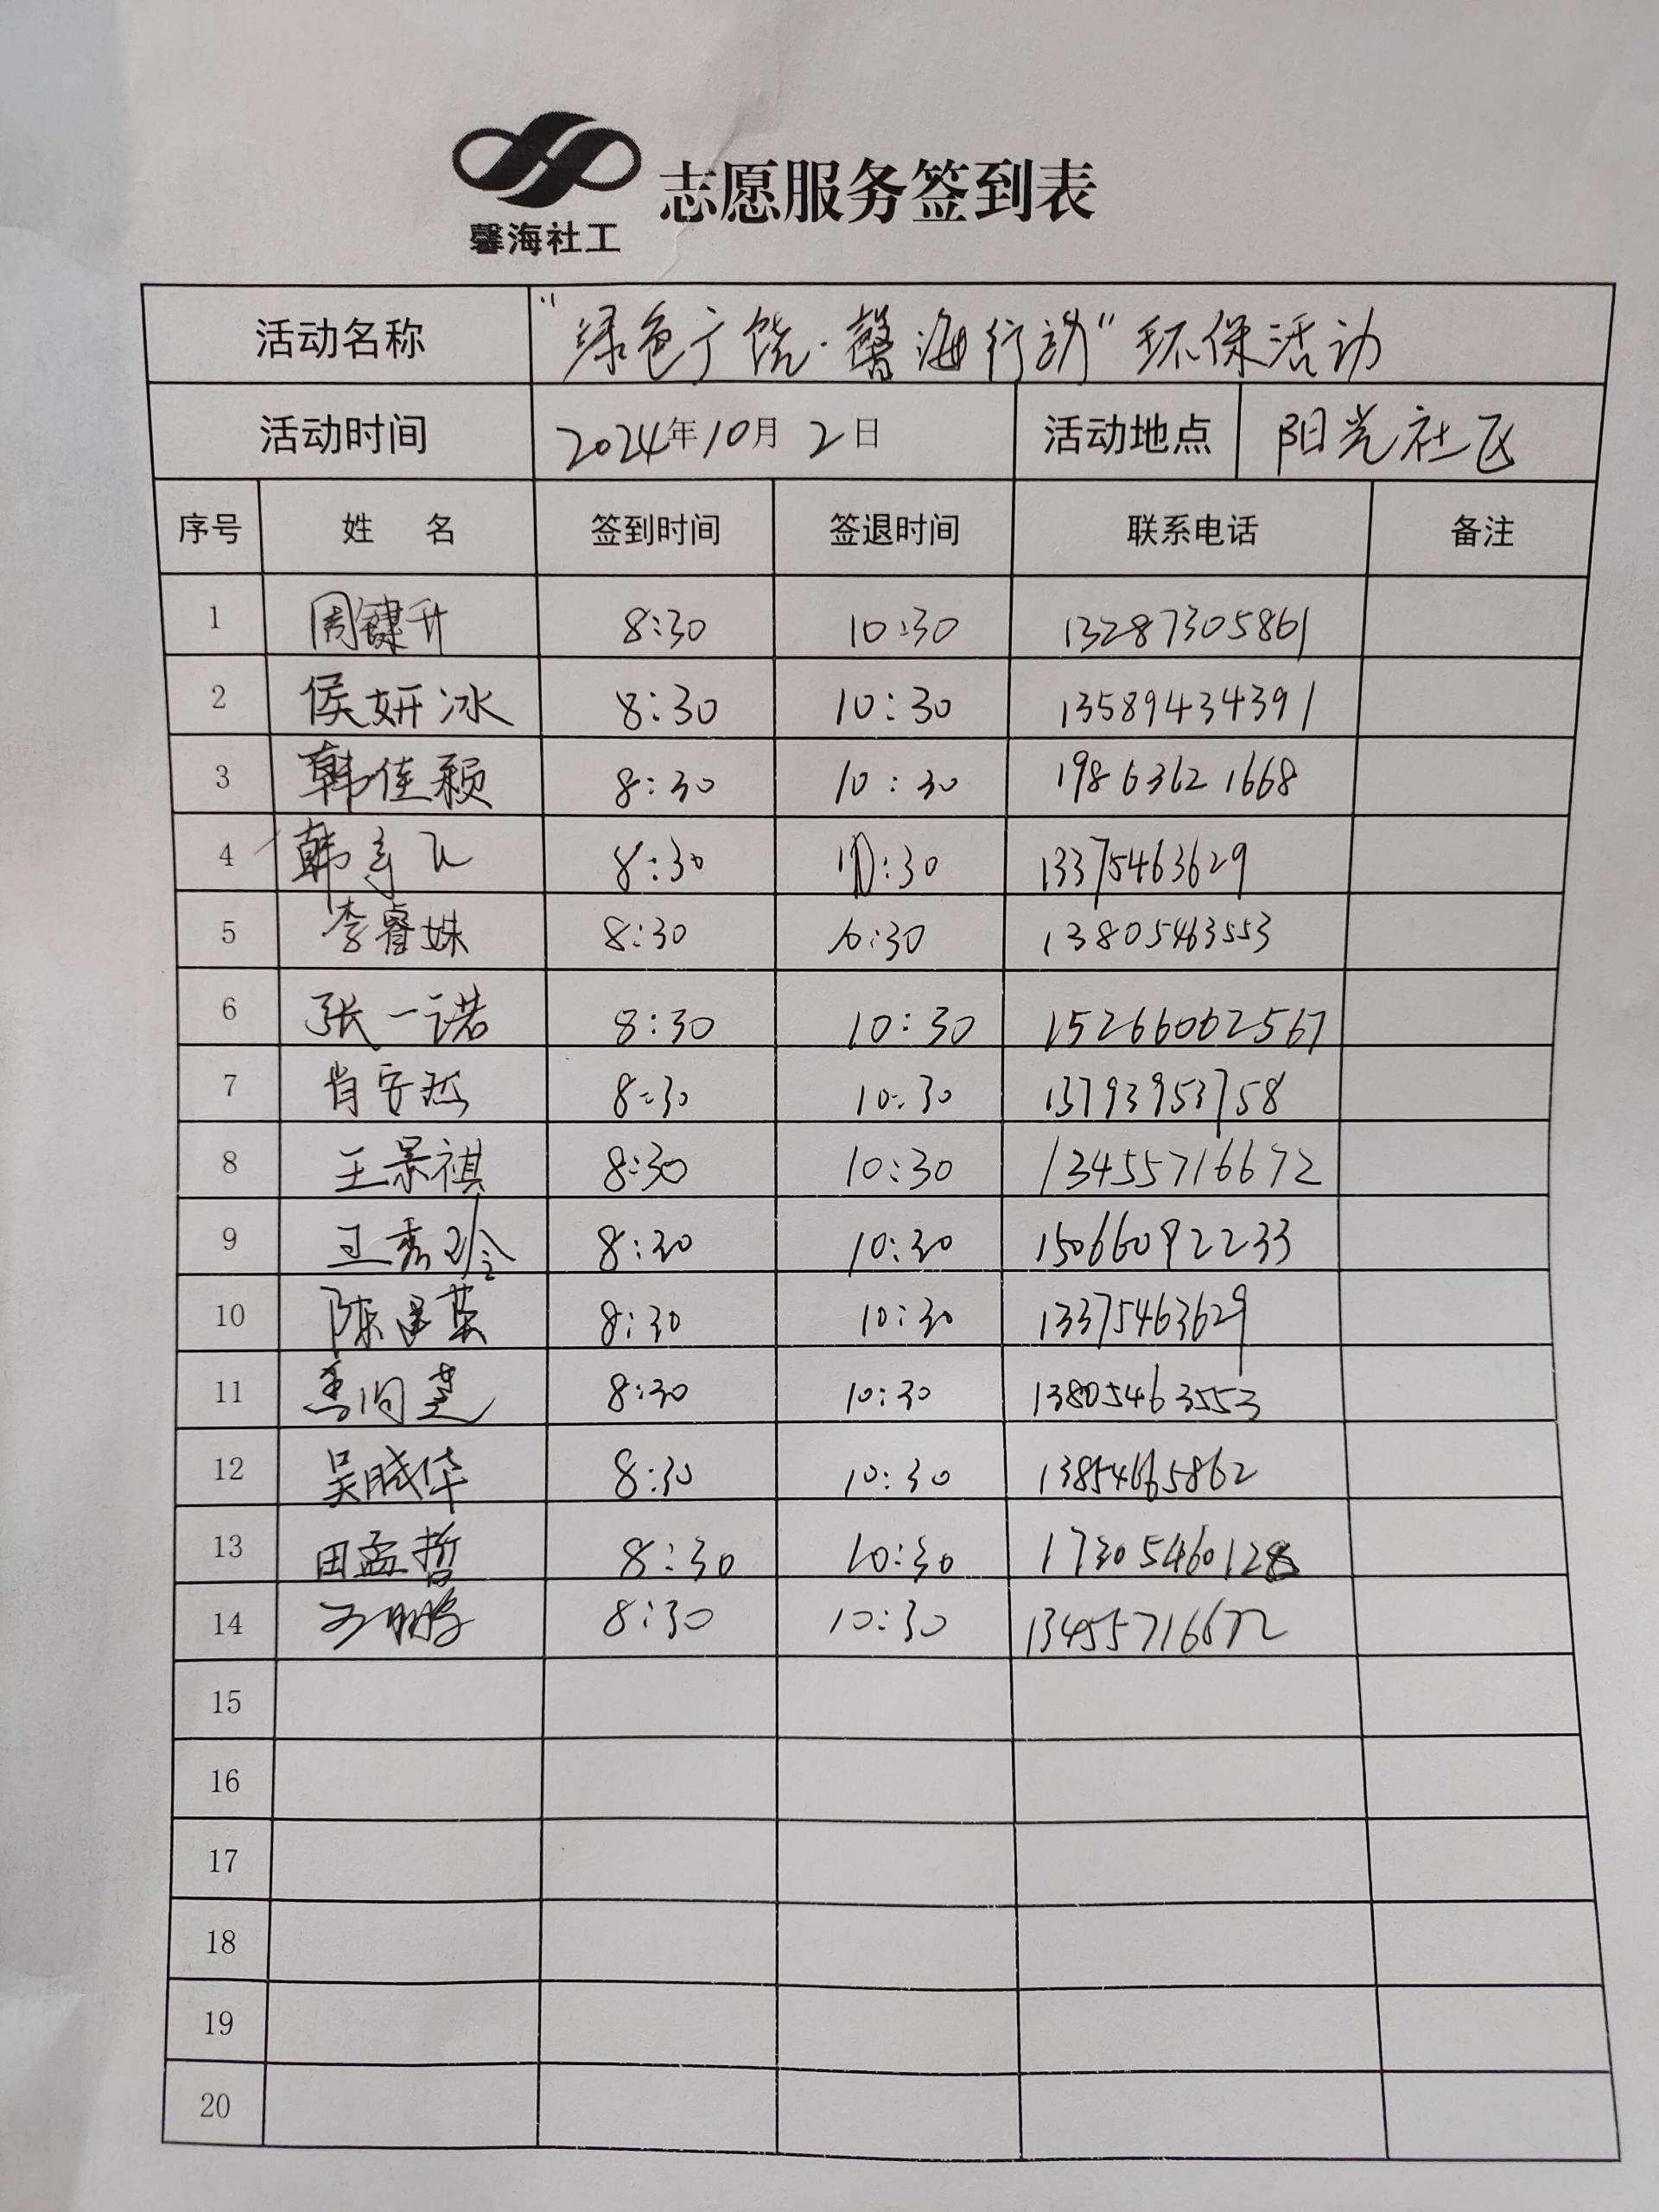 馨海社工
志愿服务签到表
活动名称 “绿色广饶·馨海行动”环保活动
活动时间 2024年10月2日 活动地点 阳光社区
序号 姓 名 签到时间 签退时间 联系电话 备注
1 周键升 8:30 10:30 13287305861
2 侯妍冰 8:30 10:30 13589434391
3 韩佳颖 8:30 10:30 19863621668
4 韩 8:30 10:30 13375463629
5 李睿姝 8:30 10:30 13805463553
6 张一诺 8:30 10:30 15266062567
7 肖安然 8:30 10:30 13793953758
8 王景祺 8:30 10:30 13455716672
9 王秀玲 8:30 10:30 15066092233
10 陈建英 8:30 10:30 13375463629
11 8:30 10:30 13805463553
12 吴晓华 8:30 10:30 13854665862
13 田孟哲 8:30 10:30 17305460128
14 王鹏 8:30 10:30 13455716672
15
16
17
18
19
20